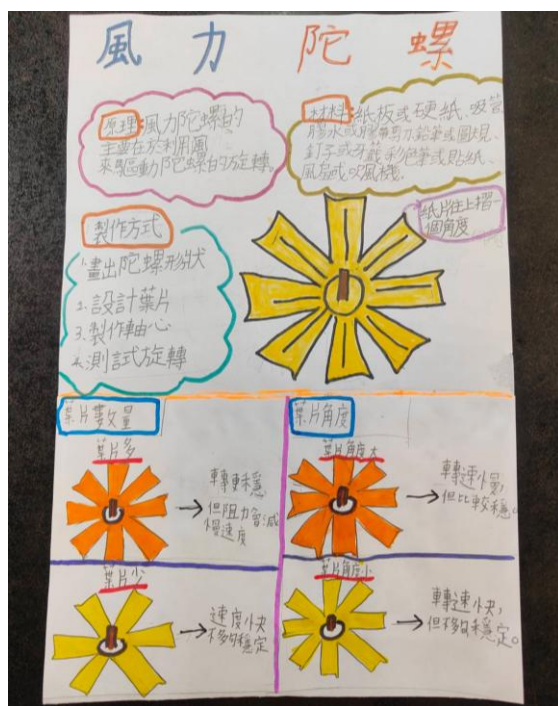 風力陀螺
原理:風力陀螺的
主要在於利用風
來驅動陀螺的旋轉。
材料:紙板或硬紙、吸管
膠水或膠帶剪刀鉛筆或圓規、
釘子或牙籤彩色筆或貼紙、
風扇或吹風機。
紙片往上摺一
個角度
製作方式
1.畫出陀螺形狀
2.設計葉片
3.製作軸心
4.測試旋轉
葉片數量
葉片多
轉更穩,
但阻力會減
慢速度
葉片少
速度快
不夠穩定
葉片角度
葉片角度大
轉速慢,
但比較穩。
葉片角度小
轉速快,
但不夠穩定。